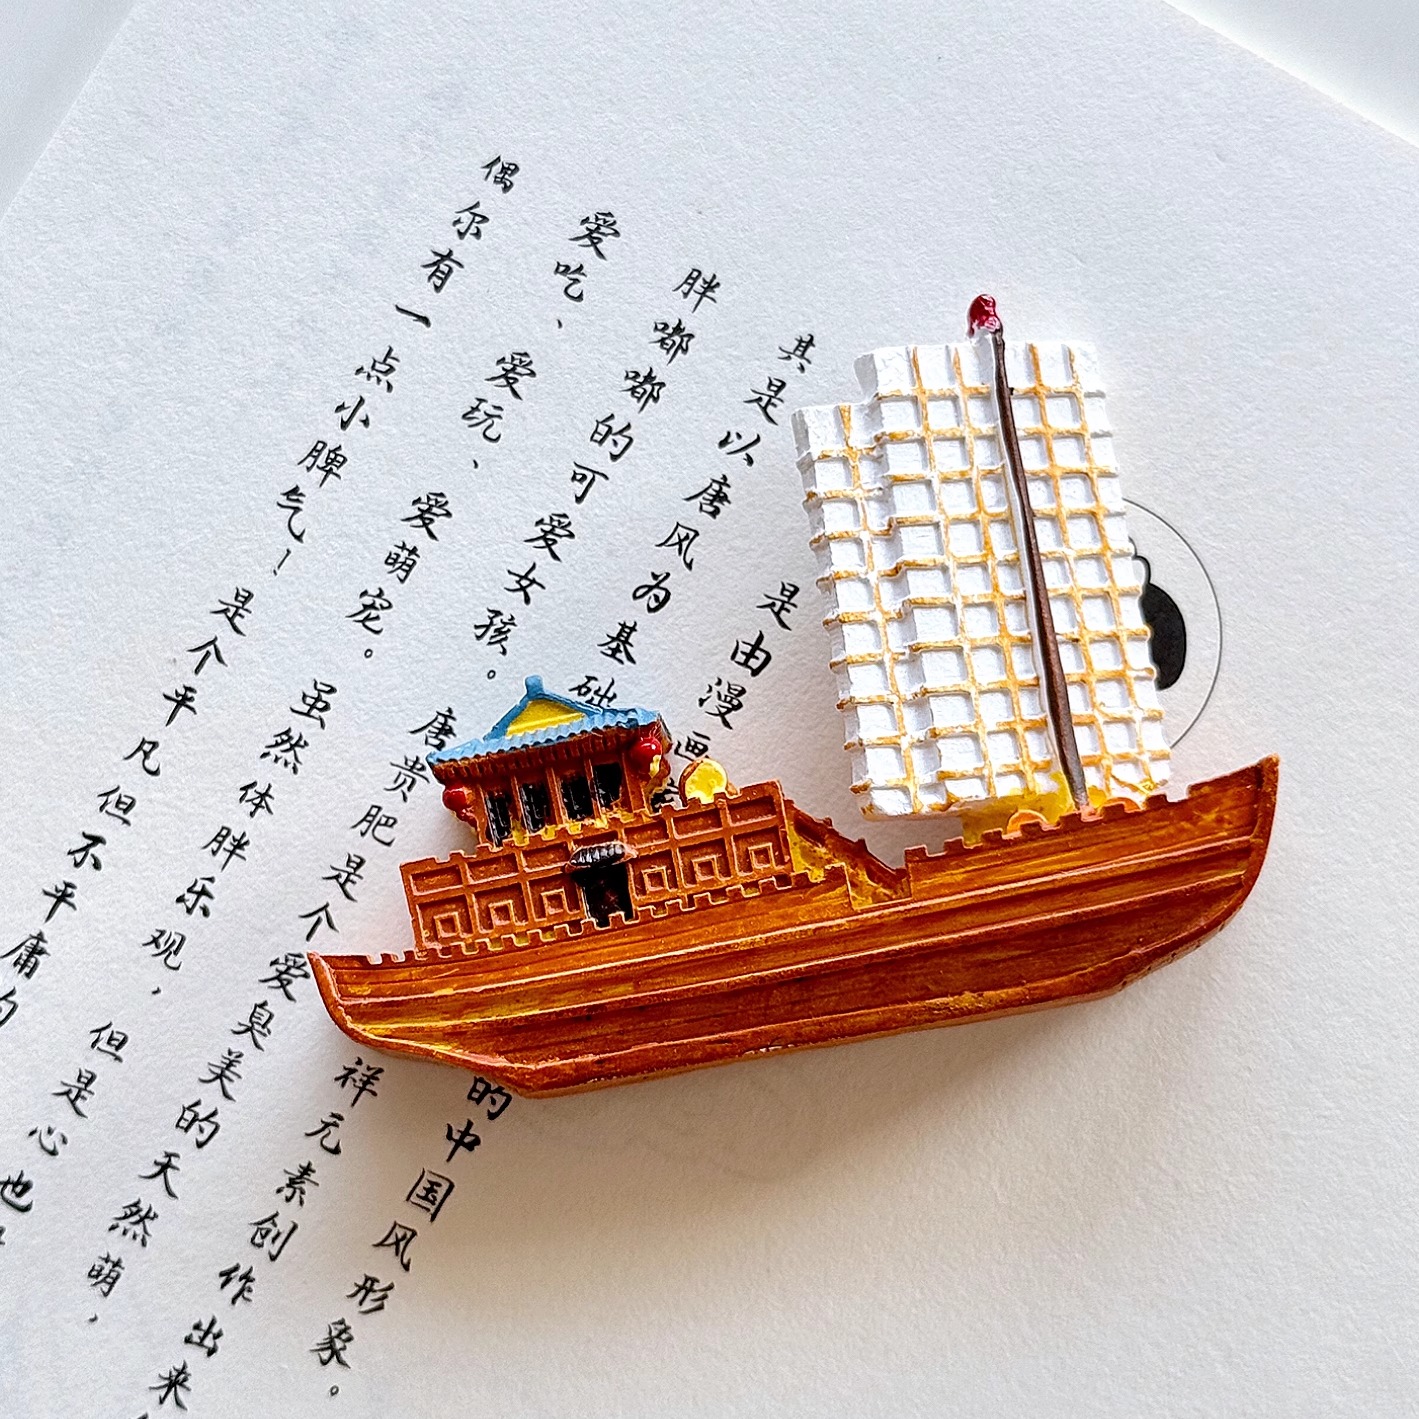 是由漫画的中国风形象。
其是以唐风为基础祥元素创作出来
胖嘟嘟的可爱女孩。唐贵肥是个爱臭美的天然萌，
爱吃、爱玩、爱萌宠。虽然体胖乐观，但是心也
偶尔有一点小脾气！是个平凡但不平庸的